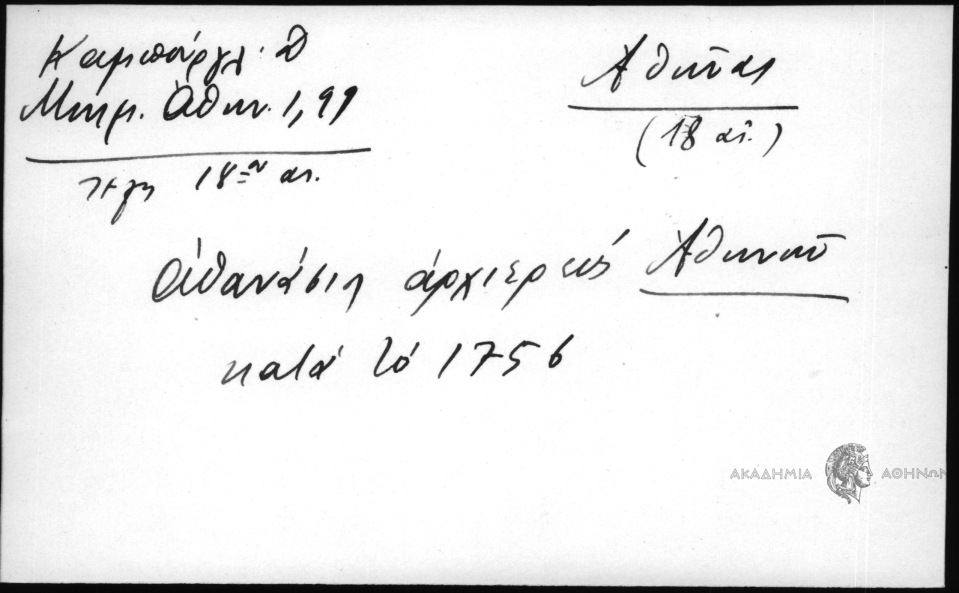 Καμπούργλ. Δ
Μνημ. Ἀθην. 1, 91
πηγὴ 18ου αἰ.
Ἀθῆναι
(18 αἰ.)
Ἀθανάσιος ἀρχιερεὺς Ἀθηνῶν
κατὰ τὸ 1756
ΑΚΑΔΗΜΙΑ ΑΘΗΝΩΝ